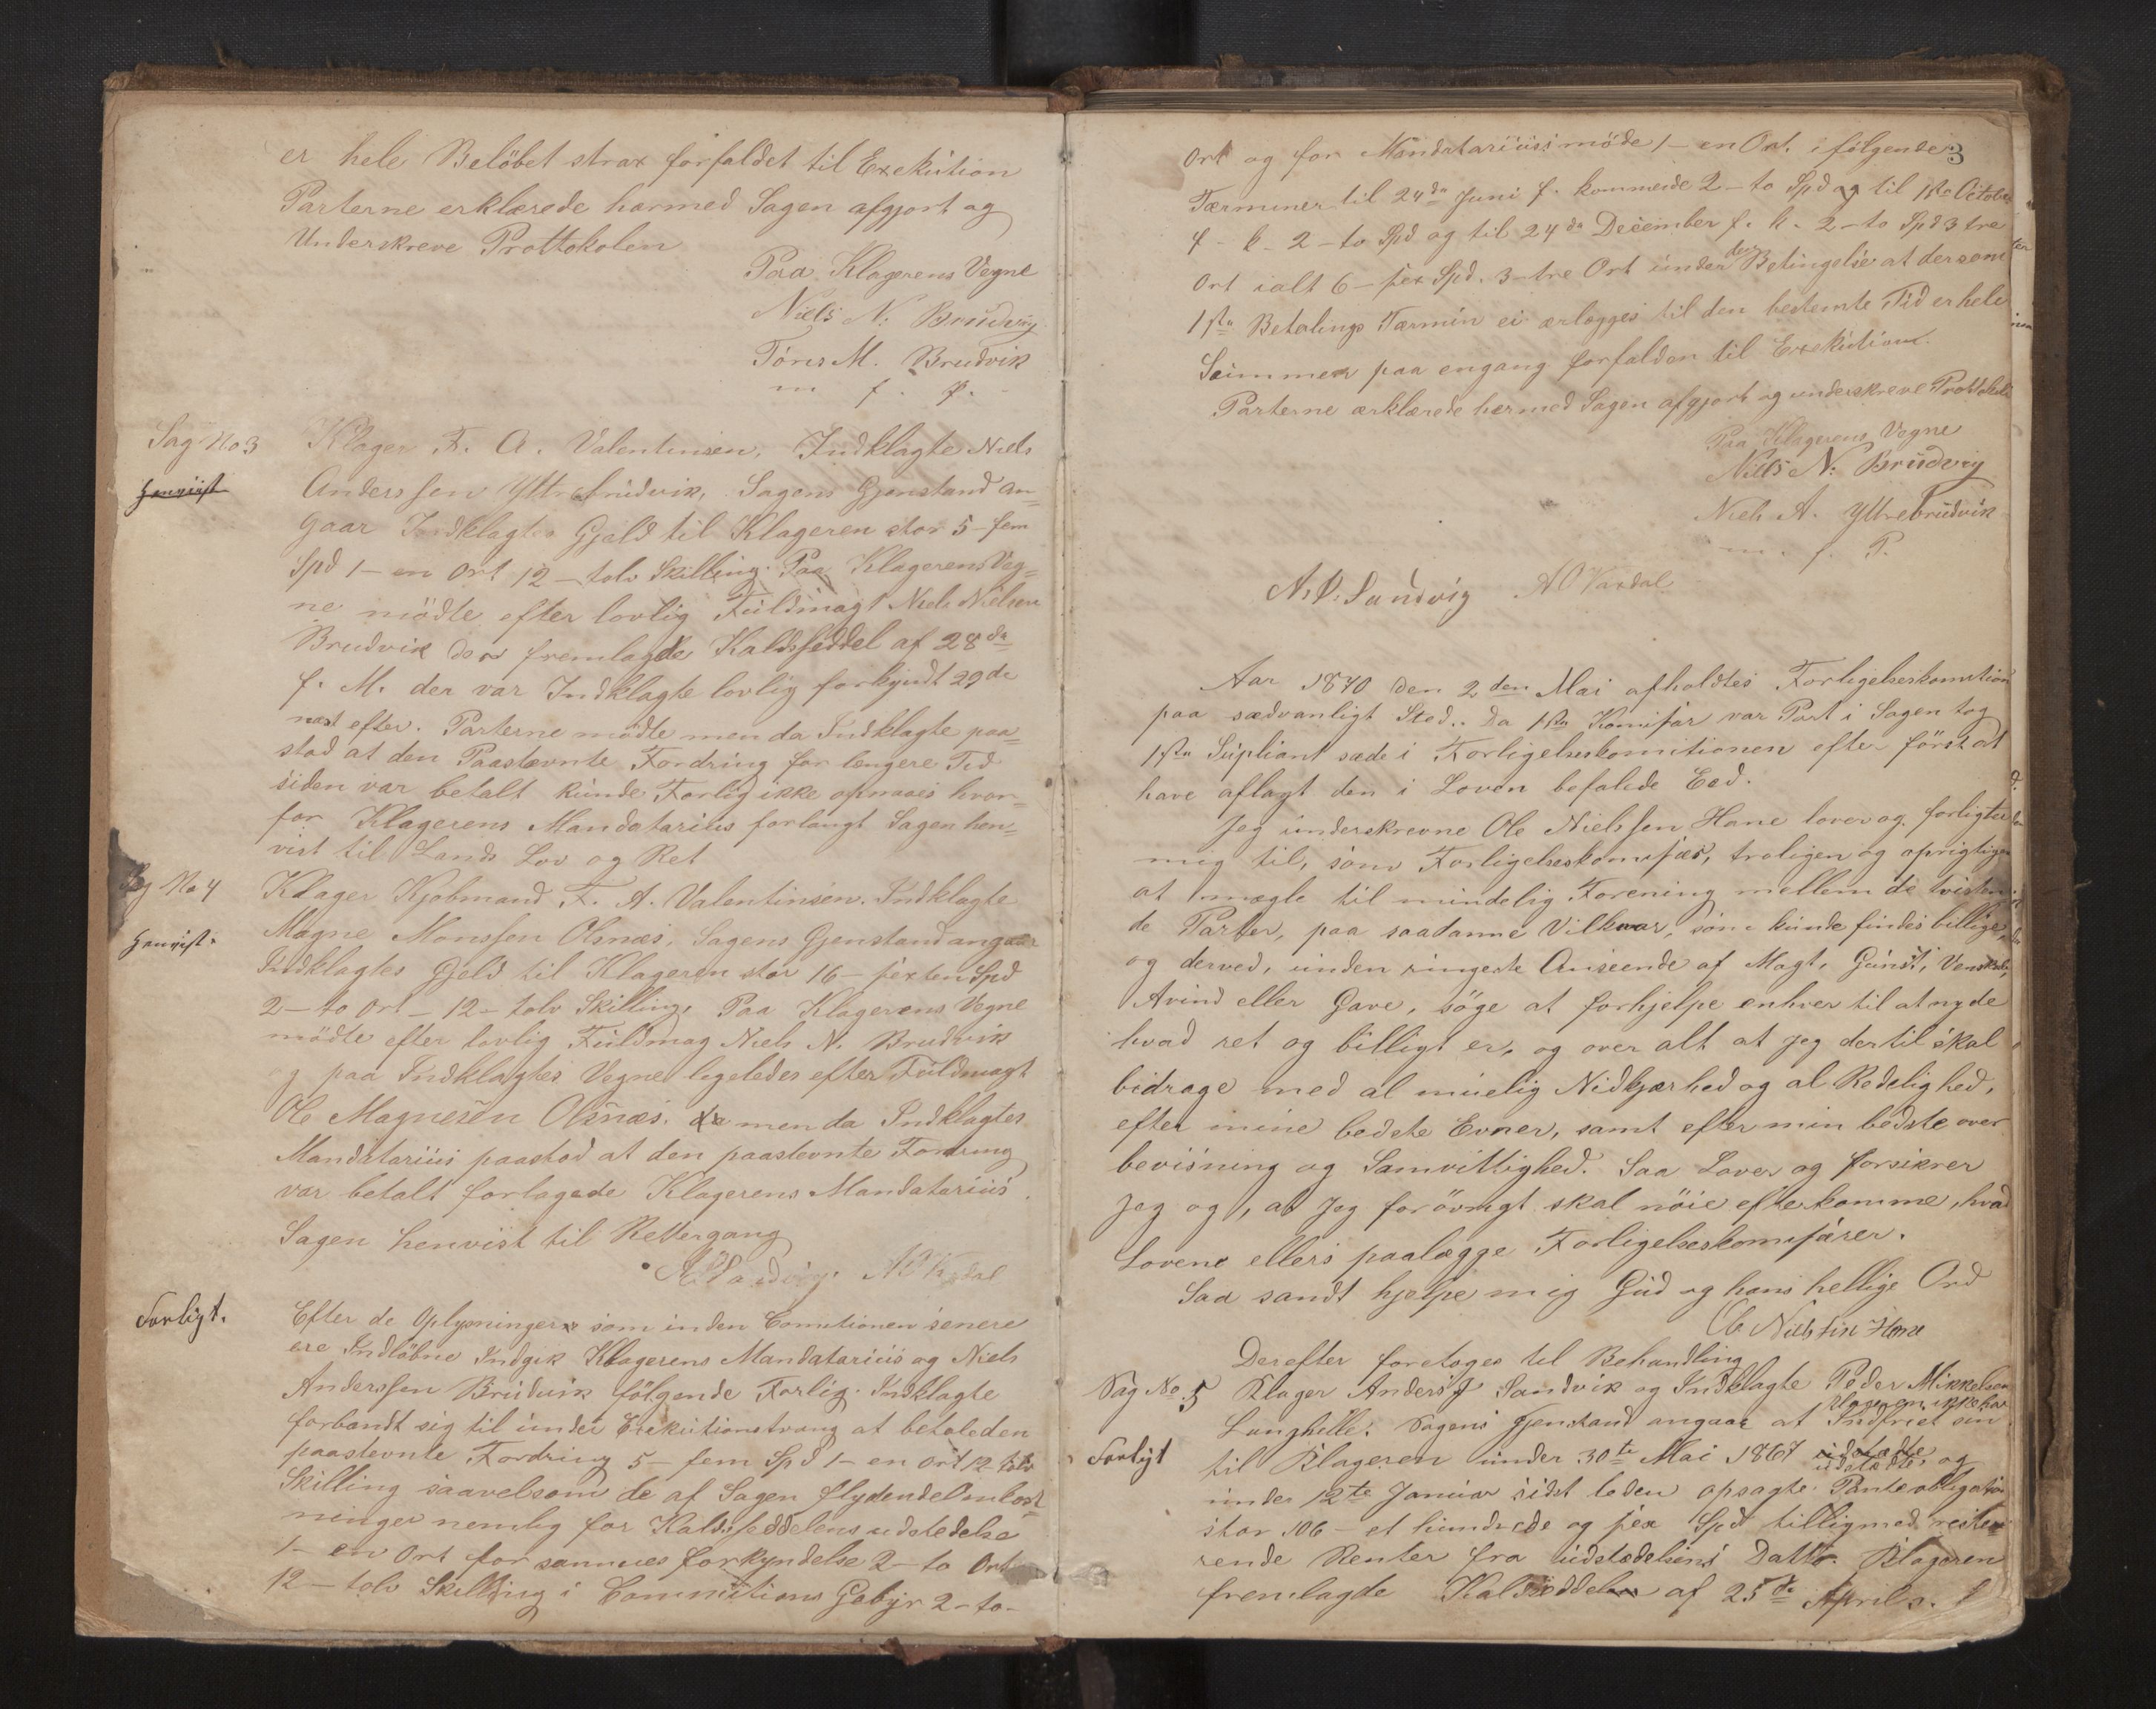 er hele Belöbet strax forfaldet til Exekution
Parterne erklærede hermed Sagen afgjort og
Underskreve Prottokolen
Paa Klagerens Vegne
Niels N: Brudvig
Töres M. Brudvik
m f. P.
Sag No 3
Klager F. A. Valentinsen, Indklagte Niels
Henviist
Anderssen Yttrebrudvik, Sagens Gjenstand an=
gaar Indklagtes Gjeld til Klageren stor 5 – fem
Spd 1 – en Ort 12 – tolv Skilling. Paa Klagerens Veg=
ne mödte efter lovlig Fuldmagt Niels Nielsen
Brudvik der fremlagde Kaldsseddel af 28de
f. M. der var Indklagte lovlig forkyndt 29de
næst efter. Parterne mödte men da Indklagte paa=
stod at den Paastevnte Fordring for længere Tid
siden var betalt kunde Forlig ikke opnaaes hvor=
for Klagerens Mandatarius forlangt Sagen hen=
vist til Lands Lov og Ret
Sag No 4
Klager Kjobmand F. A. Valentinsen. Indklagte
Henvist.
Magne Monssen Olsnæs, Sagens Gjenstand angaar
Indklagtes Gjeld til Klageren stor 16 – sexten Spd
2 – to Ort – 12 – tolv Skilling, Paa Klagerens Vegne
mödte efter lovlig Fuldmag Niels N. Brudvik
og paa Indklagtes Vegne legeledes efter Fuldmagt
Ole Magnesen Olsnæs. da men da Indklagtes
Mandatarius paastod at den paastevnte Fordring
var betalt forlagede Klagerens Mandatarius
Sagen henvist til Rettergang
A. O. Sandvig. A O Vaxdal
Forligt.
Efter de Oplysninger som inden Comitionen senere
ere Indlöbne Indgik Klagerens Mandatarius og Niels
Anderssen Brudvik fölgende Forlig. Indklagte
forbandt sig til under Exekutionstvang at betale den
paastevnte Fordring 5 – fem Spd 1 – en Ort 12 – tolv
Skilling saavelsom de af Sagen flydende Omkost
ninger nemlig for Kaldsseddelens udstedelse
1 – en Ort for sammes forkyndelse 2 – to Ort
12 – tolv Skilling i Commitions Gebyr 2 – to –
3
Ort og for Mandatariusmöde 1 – en Ort. i fölgende
Tærminer til 24de Juni f. kommende 2 – to Spd og til 1ste Octobe
f – k – 2 – to Spd og til 24de December f. k. 2 – to Spd 3 tre
Ort ialt 6 – sex Spd. 3 – tre Ort under den Betingelse at dersom
1ste Betalings Tærmin ei ærlægges til den bestemte Tid er hele
Summen paa engang forfalden til Exekution.
Parterne ærklærede hermed Sagen afgjort og underskreve Prottokole
Paa Klagerens Vegne
Niels N: Brudvig
Niels A. Yttrebrudvik
m. f. P.
A. O. Sandvig A O Vaxdal
Aar 1870 den 2den Mai afholdtes Forligelseskomition
paa sædvanligt Sted. Da 1ste Komisær var Part i Sagen tog
1ste Supliant sæde i Forligelseskomitionen efter först at
have aflagt den i Loven befalede Eed.
Jeg underskrevne Ole Nielssen Hane lover og forligter
mig til, som Forligelseskomisær, troligen og oprigtigen
at mægle til mindelig Forening mellem de tvisten
de Parter, paa saadanne Vilkaar, som kunde findes billige,
og derved, uden ringeste Anseende af Magt, Gunst, Venskab,
Avind eller Gave, söge at forhjelpe enhver til at nyde
hvad ret og billigt er, og over alt at jeg dertil skal
bidrage med al muelig Nidkjærhed og al Redelighed,
efter mine bedste Evner, samt efter min bedste over
bevisning og Samvittighed. Saa Lover og forsikrer
jeg og, at Jeg forövrigt skal nöie efterkomme, hvad
Lovene ellers paalægge Forligelseskomisærer.
Saa sandt hjelpe mig Gud og hans hellige Ord
Ole Nielssen Hane
Derefter foretoges til Behandling
Sag No. 5 Klager Anders J Sandvik og Indklagte Peder Mikkelsen
Klageren ikke har
Langhelle. Sagens Gjenstand angaar at Indfriet sin
Forligt
til Klageren under 30te Mai 1867 udstædte
udstædte, og
under 12te Januar sidst leden opsagte Panteobligation
stor 106 – et hundrede og sex Spd tilligemed reste
rende Renter fra udstædelsens Datto. Klageren
fremlagde Kaldseddel af 25de April s.